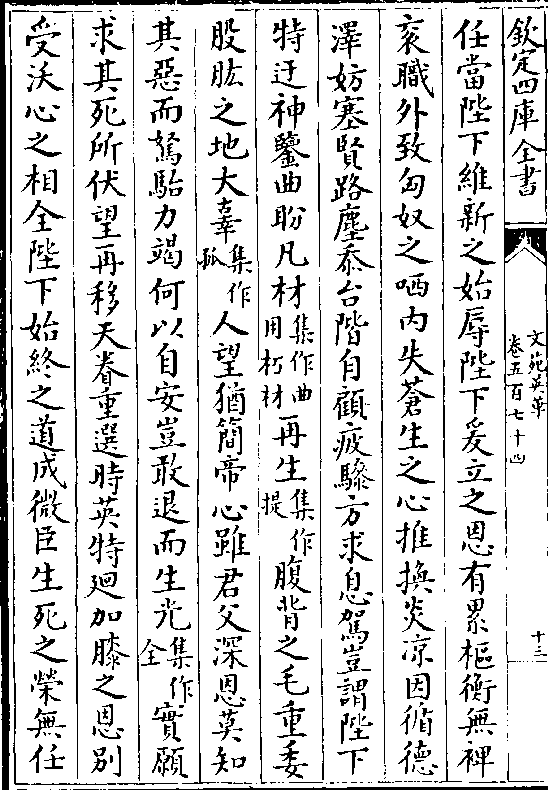 欽定四庫全書
文苑英華
卷五百七十四
十三
任當陛下維新之始辱陛下爰立之恩有累樞衡無裨
衮職外致匈奴之哂内失蒼生之心推換炎凉因循德
澤妨塞賢路塵忝台階自顧疲驂方求息駕豈謂陛下
特迂神鑒曲盼凡材集作曲用朽材再生集作提腹背之毛重委
股肱之地大辜集作孤人望猶簡帝心雖君父深恩莫知
其惡而駑駘力竭何以自安豈敢退而生光集作全實願
求其死所伏望再移天眷重選時英特廻加膝之恩别
受沃心之相全陛下始終之道成微臣生死之榮無任